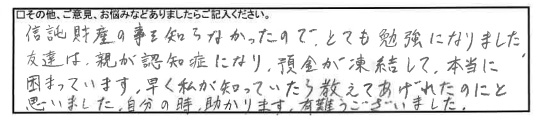 □その他、ご意見、お悩みなどありましたらご記入ください。
信託財産の事も知らなかったので、とても勉強になりました
友達は、親が認知症になり、預金が凍結して、本当に
困まっています。早く私が知っていたら教えてあげれたのにと
思いました。自分の時、助かります。有難うございました。